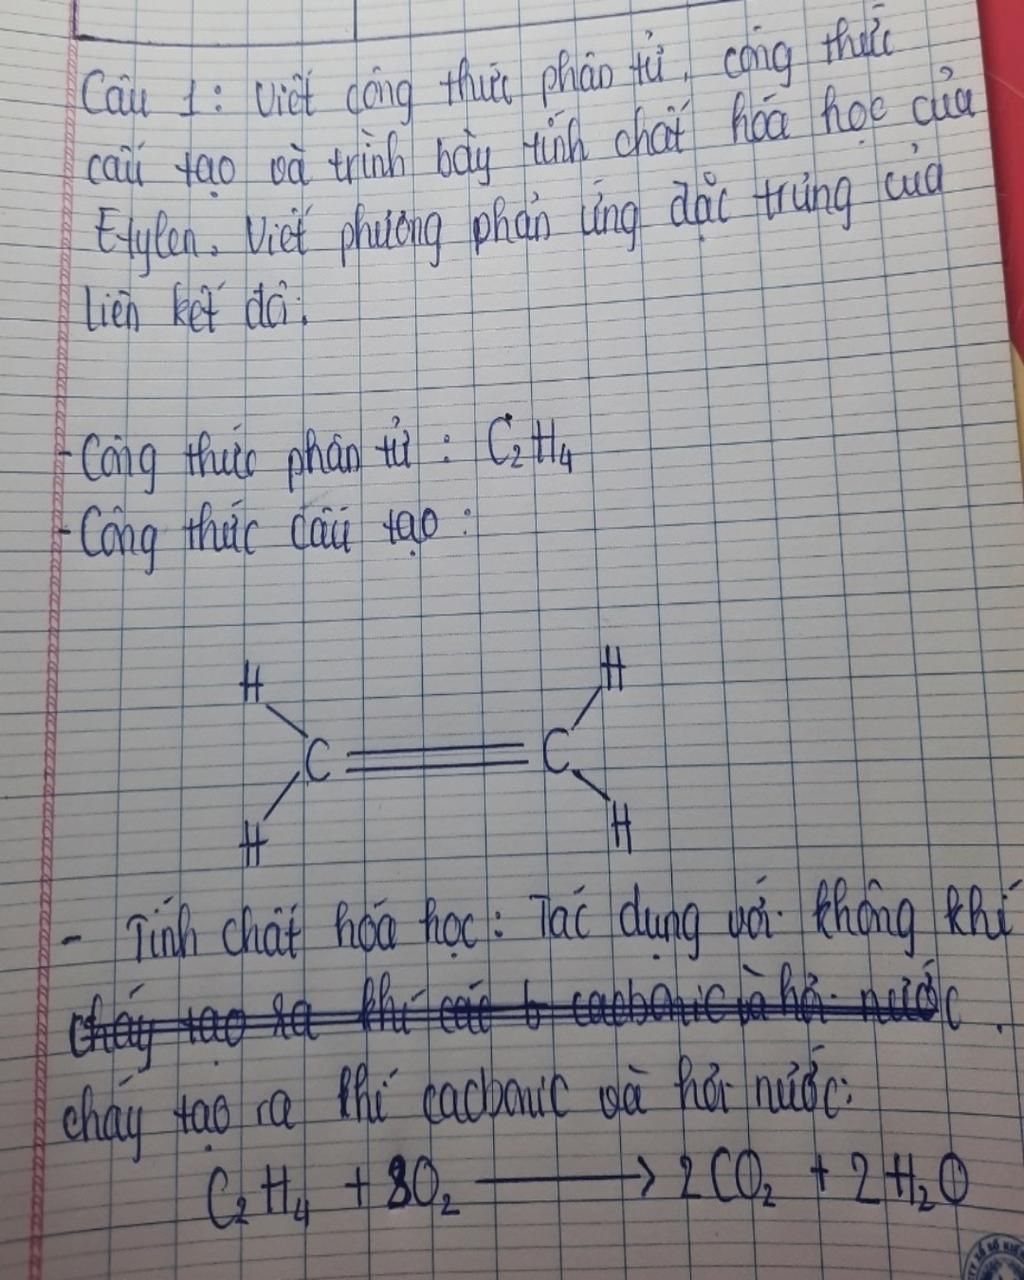 Câu 1: Viết công thức phân tử, công thức
cấu tạo và trình bày tính chất hóa học của
Etylen. Viết phương phản ứng đặc trưng của
liên kết đôi:
- Công thức phân tử : C₂H₄
- Công thức cấu tạo :
H H
C C
H H
- Tính chất hóa học : Tác dụng với không khí
cháy tạo ra khí các b cacbonic và hơi nước.
cháy tạo ra khí cacbonic và hơi nước:
C₂H₄ + 3O₂ → 2CO₂ + 2H₂O